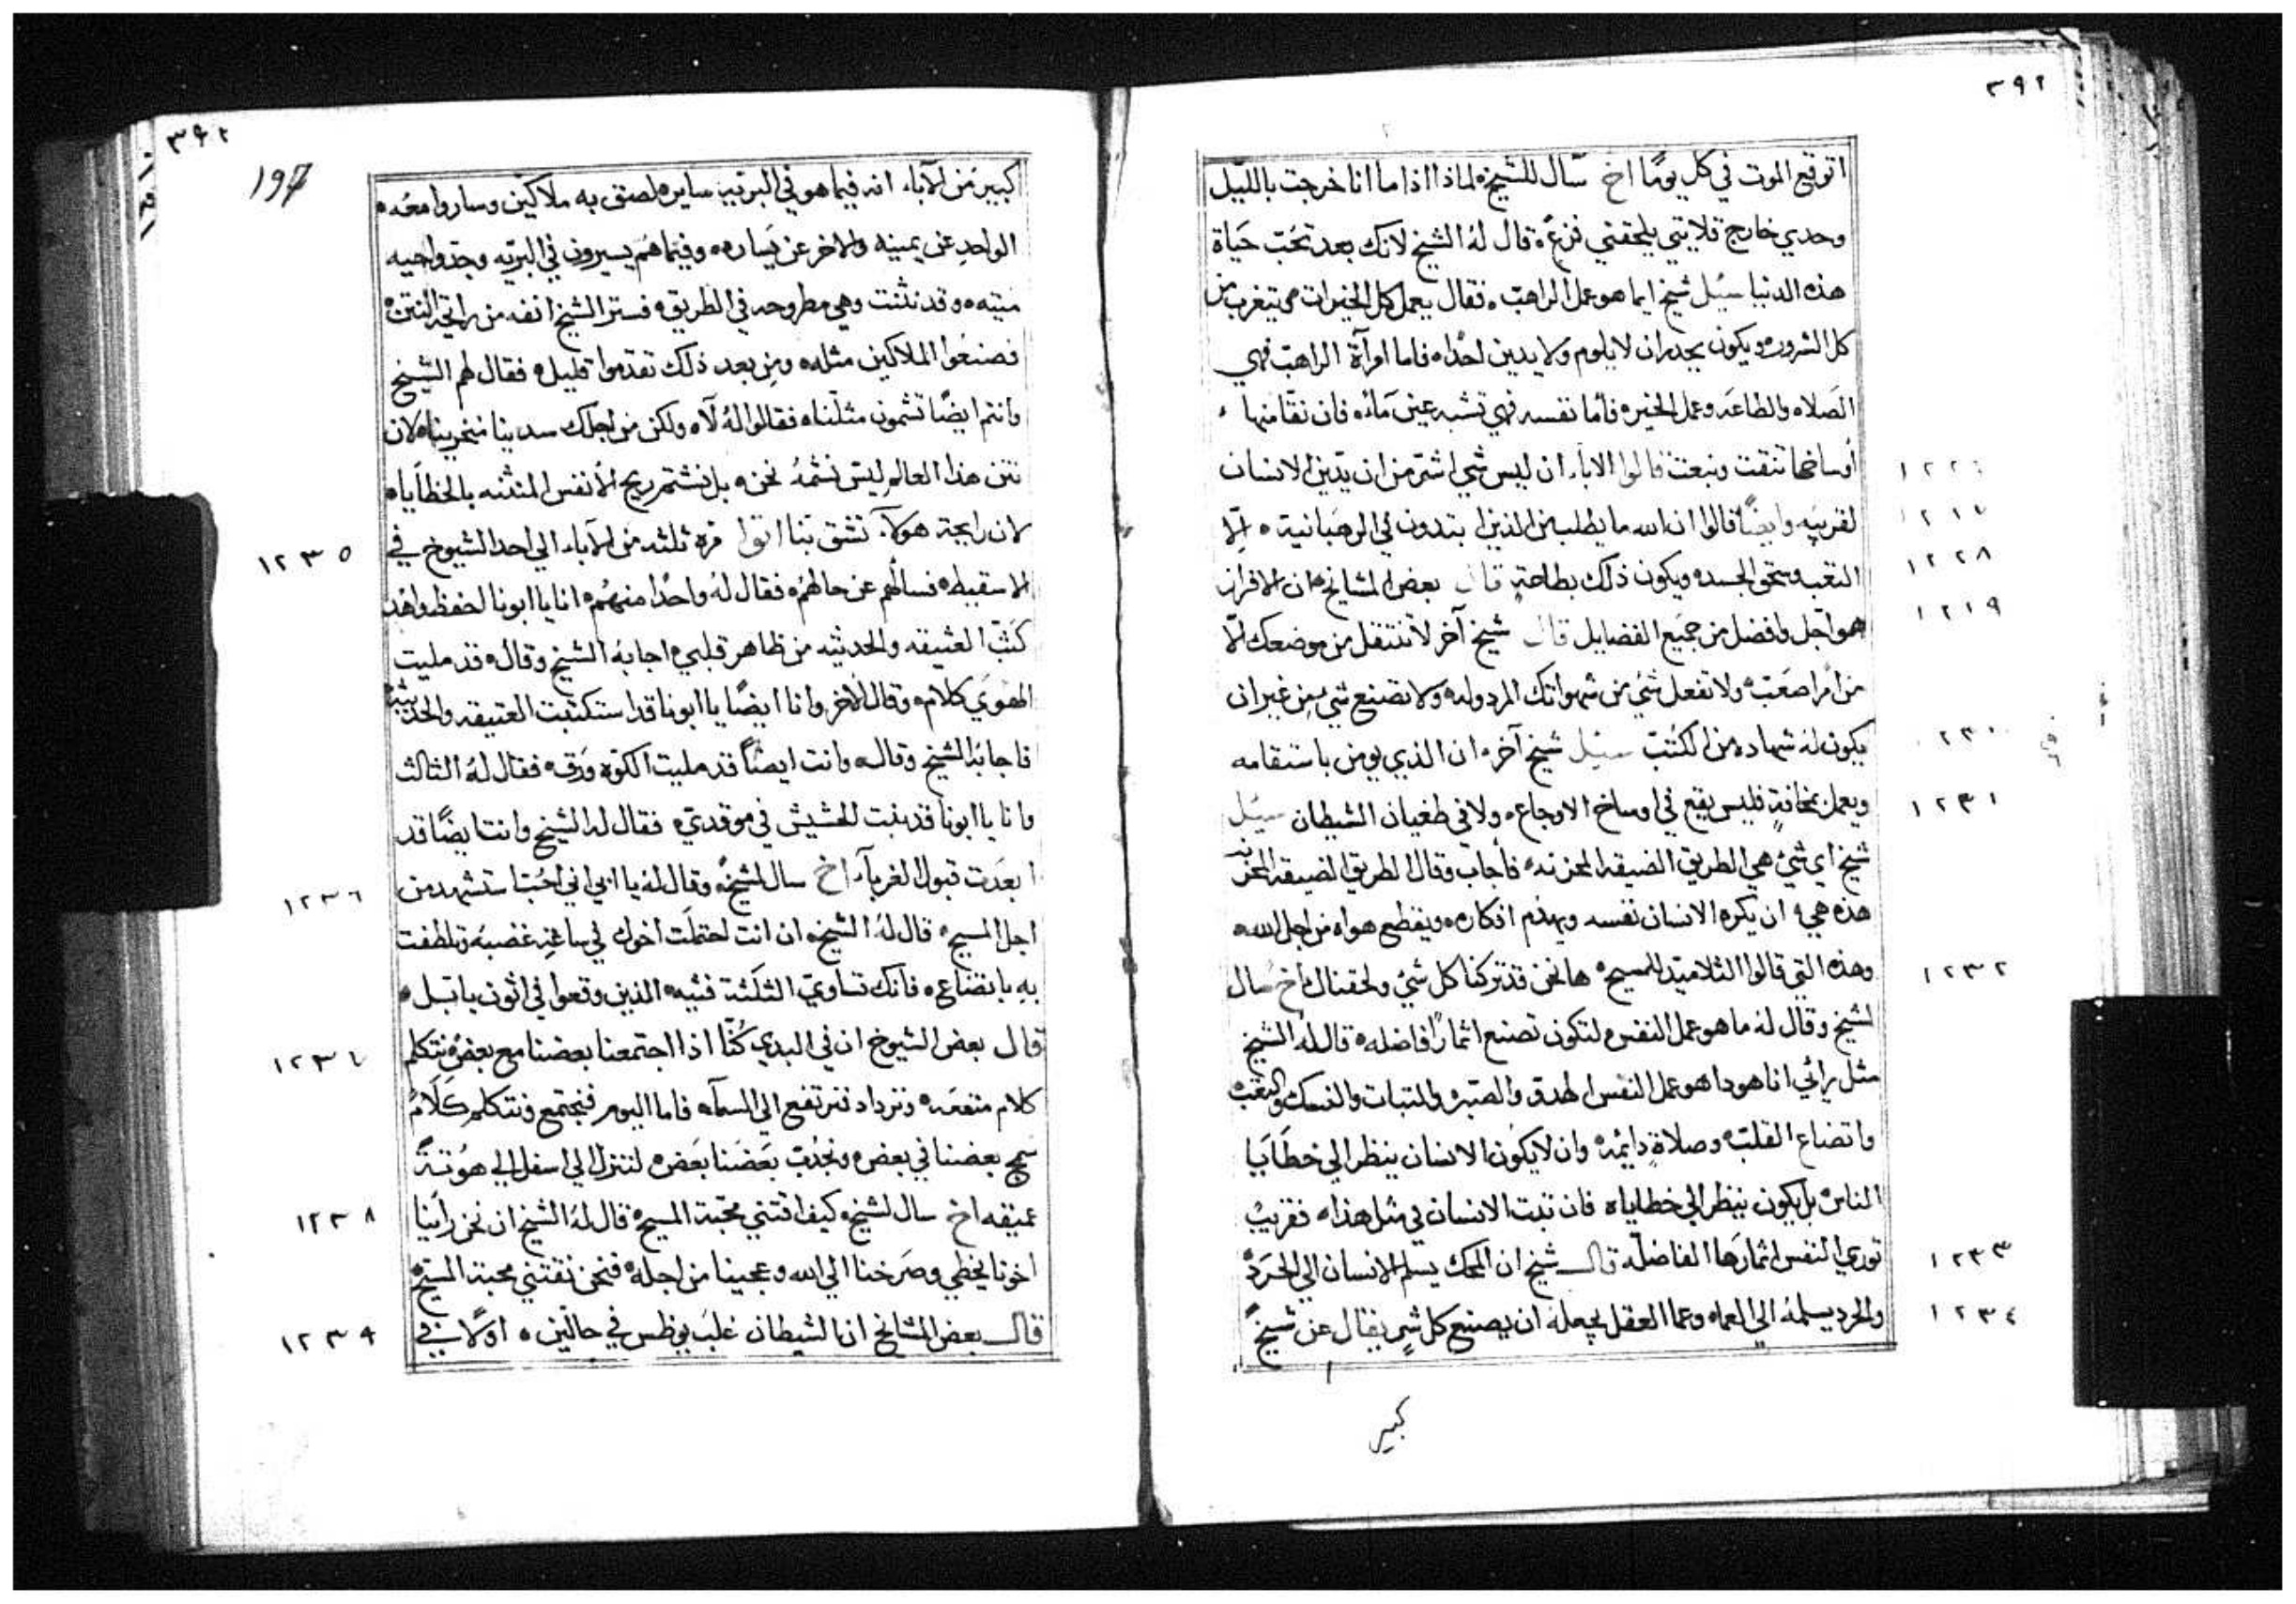 ٣٩٢
اتوقع الموت في كل يومًا اخ سال للشيخ لماذا اذا ما انا خرجت بالليل
وحدي خارج قلايتي يلحقني فزع قال لهُ الشيخ لانك بعد تحب حياة
هذه الدنيا سيل شيخ ايما هو عمل الراهب فقال يعمل كل الخيرات ويتغرب من
كل الشرور ويكون يحدران لا يلوم ولا يدين احدًا فاما امرآة الراهب فهي
الصلاه والطاعه وعمل الخير فاما نفسه فهي تشبه عين ماء فان نقا منها
أوساخها تنقت ونبعت قالوا الاباء ان ليس شي اشر من ان يدين الانسان
لقريبه وايضًا قالوا ان الله ما يطلب من الذين ابتدون في الرهبانية إلا
١٢٢٨
التعب وسحق الجسد ويكون ذلك بطاعة قال بعض المشايخ ان الافراز
١٢١٩
هو اجل وافضل من جميع الفضايل قال شيخ آخر لا تنتقل من موضعك الّا
من امر اصعب ولا تفعل شي من شهواتك المردوله ولا تصنع شي من غير ان
١٢٣٠
يكون له شهاده من الكتب سيل شيخ آخر ان الذي يومن باستقامه
١٢٣١
ويعمل بمخافةٍ فليس يقع في اوساخ الاوجاع ولا في طغيان الشيطان سيل
شيخ اي شي هي الطريق الضيقه المحزنه فأجاب وقال الطريق الضيقه المحزنه
هذه هي ان يكره الانسان نفسه ويهدم افكاره ويقطع هواه من اجل الله
١٢٣٢
وهذه التي قالوا التلاميد للمسيح ها نحن قد تركنا كل شي ولحقناك اخ سال
لشيخ وقال له ما هو عمل النفس لتكون تصنع اثمارًا فاضله قال له الشيخ
مثل رائي انا هودا هو عمل النفس الهدو والصبر والتبات والنسك والتعب
واتضاع القلب وصلاةٍ دايمه وان لا يكون الانسان ينظر الي خطايا
الناس بل يكون ينظر الي خطاياه فان تبت الانسان في مثل هذا فقريب
١٢٣٣
توري النفس اثمارها الفاضلّه قال شيخ ان المحك يسلم الانسان الي الحرد
١٢٣٤
والحرد يسلمه الي العما وعما العقل يجعله ان يصنع كل شر يقال عن شيخ
كبير
٣٩٢
197
كبير من الاباء انه فيما هو في البرية سايره لصق به ملاكين وساروا معه
الواحد عن يمينه والاخر عن يساره وفيما هم يسيرون في البريه وجدوا جيه
ميته وقد نتنت وهي مطروحه في الطريق فستر الشيخ انفه من رايحة النتن
فصنعوا الملاكين مثله ومن بعد ذلك تقدموا قليل فقال لهم الشيخ
وانتم ايضًا تشمون مثلنا فقالوا لهُ لآ ولكن من اجلك سدينا منخرينا لان
نتن هذا العالم ليس نشمهُ نحن بل نشتم ريح الانفس المنتنه بالخطايا
١٢٣٥
لان رايحة هولآ تشق بنا اتوا مره ثلثه من الآباء الي احد الشيوخ في
الاسقيط فسالهم عن حالهم فقال لهُ واحدًا منهُم انا يا ابونا احفظ واهد
كتب العتيقه والحديثه من ظاهر قلبي اجابهُ الشيخ وقال قد مليت
الهوي كلام وقال الاخر وانا ايضًا يا ابونا قد استكتبت العتيقه والحديثه
فاجابه الشيخ وقال وانت ايضًا قد مليت الكوه ورق فقال لهُ الثالث
وانا يا ابونا قد نبت للحشيش في موقدي فقال له الشيخ وانت ايضًا قد
١٢٣٦
ابعدت قبول الغربآء اخ سال لشيخ وقال لهُ يا ابي اني احُب استشهد من
اجل المسيح قال لهُ الشيخ ان انت احتملت اخوك في ساعة غضبه وتلطفت
به باتضاع فانك تساوي الثلثة فتيه الذين وقعوا في اتون بابل
قال بعض الشيوخ ان في البدي كُنّا اذا اجتمعنا بعضنا مع بعض نتكلم
كلام منفعه ونزداد فنرتفع الي السمآء فاما اليوم فنجتمع ونتكلم كلام
سمج بعضنا في بعض ونجدب بعضنا بعض لننزل الي اسفل الي هوتةً
١٢٣٨
عميقه اخ سال لشيخ كيف اقتني محبة المسيح قال لهُ الشيخ ان نحن راينا
اخونا يخطي وصرخنا الي الله وعجينا من اجله فنحن نقتني محبة المسيح
١٢٣٩
قال بعض المشايخ ان الشيطان غلب يوظس في حالتين اولًا في